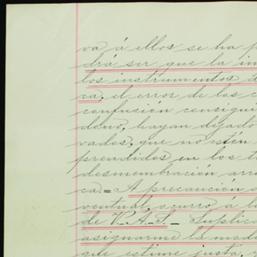 va á ellos se ha p
drá ser que la in
los instrumentos d
ca, el error de las c
confusión consigui
deno, hayan dejado
vados, que no estén
prendidos en los t
desmembración arri
ca = A precaución
ventual, ocurro á l
de V. A. S. Suplica
asignarme la mod
que estime justa,